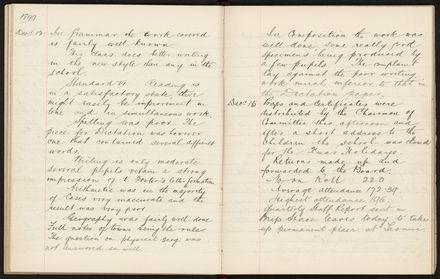 1899
Dec. 13. In Grammar the work covered
is fairly well known
This class does better writing
in the new style than any in the
school.
Standard VI Reading is
in a satisfactory state, there
might easily be improvement in
tone and in simultaneous work.
Spelling was poor. The
piece for Dictation was however
one that contained several difficult
words.
Writing is only moderate
several pupils retain a strong
impression of
Arithmetic was in the majority
of cases very inaccurate and the
result was very poor.
Geography was fairly well done
Full notes of towns being the rule.
The question on physical geog was
not answered so well
In Composition the work was
well done, some really good
specimens being produced by
a few pupils. The complaint
lay against the poor writing
work much inferior to that in
the Dictation paper.
Dec. 16 Prizes and Certificates were
distributed by the Chairman of
Committee this afternoon and
after a short address to the
children the school was closed
for the Xmas Holidays.
Returns made up and
forwarded to the Board.
No. on Roll 220
Average attendance 172.39
Highest attendance 196.
Quarterly Staff Report sent in
Miss leaves today to take
up permanent place at